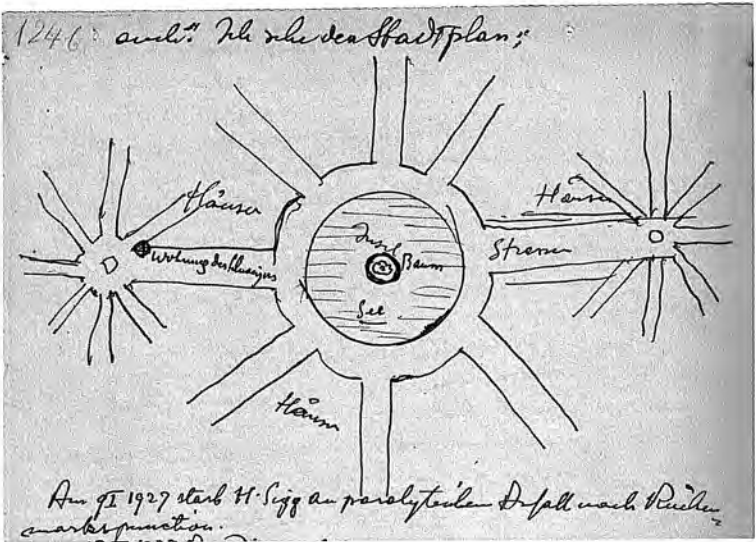 124
auch: Ich sehe den Stadtplan:
Häuser
Häuser
Wohnung des
Insel
Baum
Strassen
See
Häuser
Am 9 I 1927 starb H. Sigg an paralytischem Anfall nach Rücken-
markspunction.